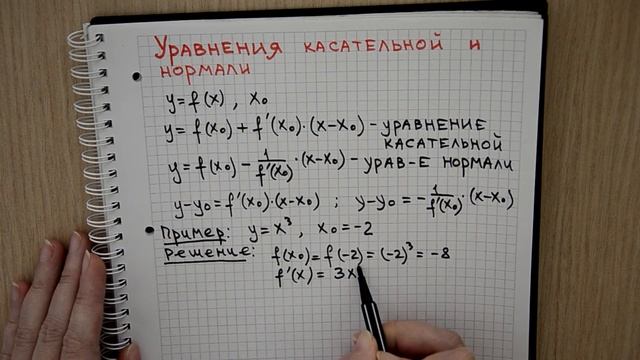 Уравнения касательной и
нормали
y=f(x), x₀
y=f(x₀)+f'(x₀)·(x-x₀) - уравнение
касательной
y=f(x₀)-1/f'(x₀)·(x-x₀) - урав-е нормали
y-y₀=f'(x₀)·(x-x₀) ; y-y₀=-1/f'(x₀)·(x-x₀)
Пример: y=x³, x₀=-2
Решение: f(x₀)=f(-2)=(-2)³=-8
f'(x)=3x